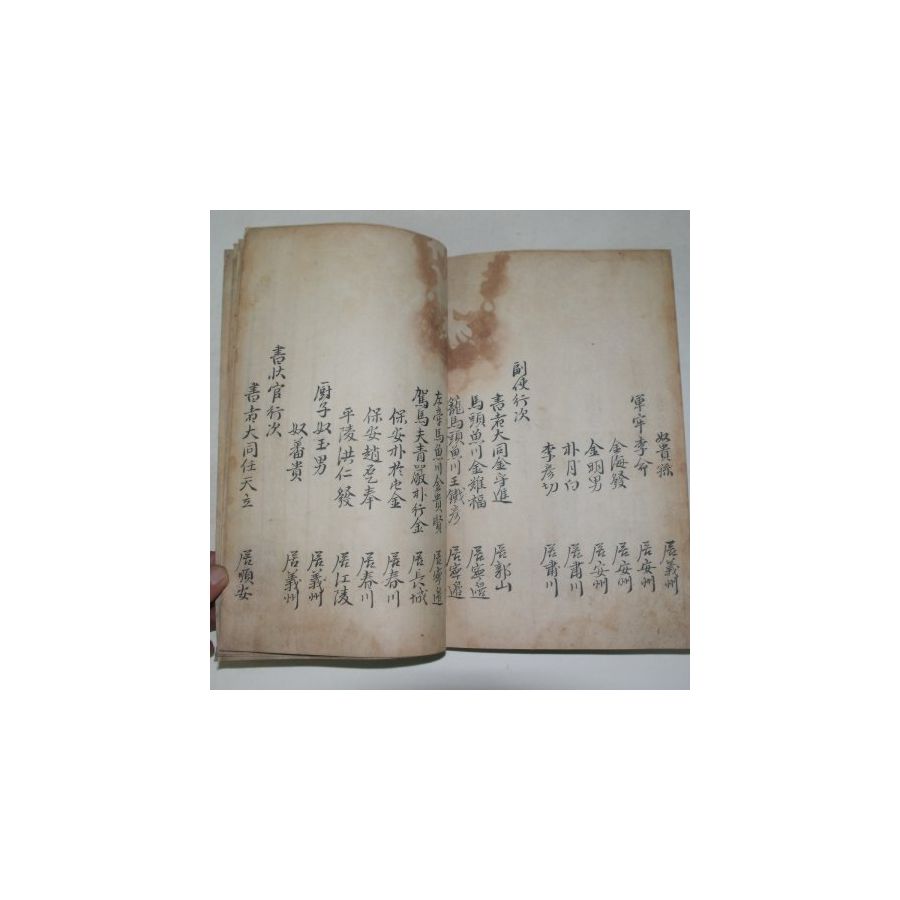 奴貴孫 居義州
軍牢李介 居安州
金海發 居安州
金明男 居安州
朴月白 居肅川
李彦功 居肅川
副使行次
書者大同金守進 居郭山
馬頭魚川金雄福 居寧邊
籠馬頭魚川王鐵彦 居寧邊
左牽馬魚川金貴賢 居寧邊
駕馬夫青嚴朴行金 居長城
保安朴於屯金 居春川
保安趙 奉 居春川
平陵洪仁發 居江陵
厨子奴玉男 居義州
奴蕃貴 居義州
書狀官行次
書者大同任天立 居順安